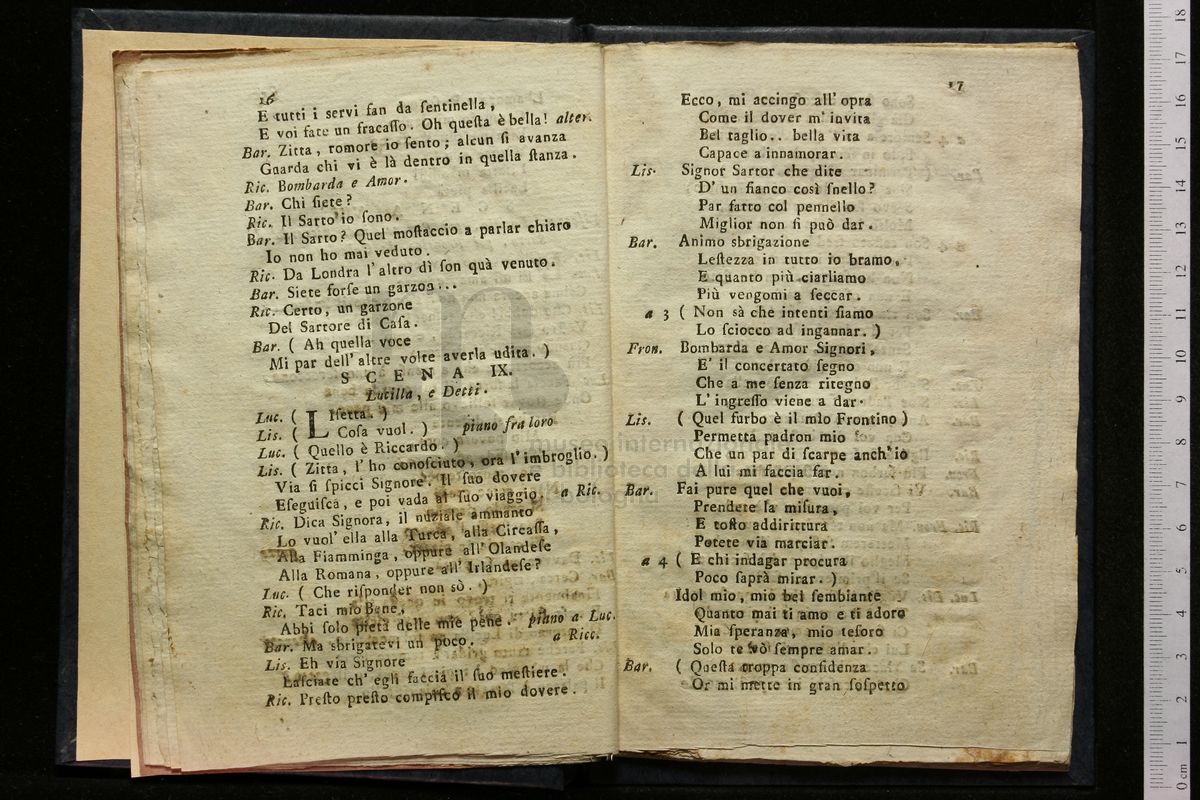 16
E tutti i servi ſan da ſentinella,
E voi fate un fracaſſo. Oh queſta è bella! alter.
Bar. Zitta, romore io ſento; alcun ſi avanza
Guarda chi vi è là dentro in quella ſtanza.
Ric. Bombarda e Amor.
Bar. Chi ſiete?
Ric. Il Sarto io ſono.
Bar. Il Sarto? Quel moſtaccio a parlar chiaro
Io non ho mai veduto.
Ric. Da Londra l'altro dì ſon quà venuto.
Bar. Siete forſe un garzon...
Ric. Certo, un garzone
Del Sartore di Caſa.
Bar. ( Ah quella voce
Mi par dell'altre volte averla udita. )
SCENA IX.
Lucilla, e Detti.
Luc. ( Liſetta. )
Lis. ( Coſa vuol. ) piano fra loro
Luc. ( Quello è Riccardo. )
Lis. ( Zitta, l'ho conoſciuto, ora l'imbroglio. )
Via ſi ſpicci Signore. Il ſuo dovere
Eſeguiſca, e poi vada al ſuo viaggio. a Ric.
Ric. Dica Signora, il nuziale ammanto
Lo vuol'ella alla Turca, alla Circaſſa,
Alla Fiamminga, oppure all'Olandeſe
Alla Romana, oppure all'Irlandeſe?
Luc. ( Che riſponder non sò. )
Ric. Taci mio Bene,
Abbi ſolo pietà delle mie pene. piano a Luc.
Bar. Ma sbrigatevi un poco. a Ricc.
Lis. Eh via Signore
Laſciate ch'egli faccia il ſuo meſtiere.
Ric. Preſto preſto compiſco il mio dovere.
17
Ecco, mi accingo all'opra
Come il dover m'invita
Bel taglio.. bella vita
Capace a innamorar.
Lis. Signor Sartor che dite
D'un fianco così ſnello?
Par fatto col pennello
Miglior non ſi può dar.
Bar. Animo sbrigazione
Leſtezza in tutto io bramo,
E quanto più ciarliamo
Più vengomi a ſeccar.
a 3 ( Non sà che intenti ſiamo
Lo ſciocco ad ingannar. )
Fron. Bombarda e Amor Signori,
E' il concertato ſegno
Che a me ſenza ritegno
L'ingreſſo viene a dar.
Lis. ( Quel furbo è il mio Frontino )
Permetta padron mio
Che un par di ſcarpe anch'io
A lui mi faccia far.
Bar. Fai pure quel che vuoi,
Prendete la miſura,
E toſto addirittura
Potete via marciar.
a 4 ( E chi indagar procura
Poco ſaprà mirar. )
Idol mio, mio bel ſembiante
Quanto mai ti amo e ti adoro
Mia ſperanza, mio teſoro
Solo te vò ſempre amar.
Bar. ( Queſta troppa confidenza
Or mi mette in gran ſoſpetto
museo internazionale
e biblioteca della
di bologna